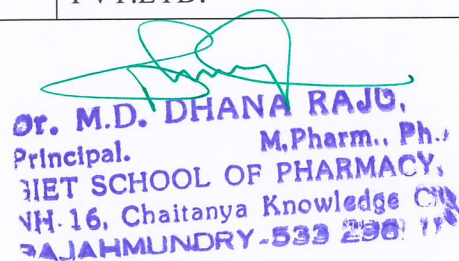 PVT.LTD.
Dr. M.D. DHANA RAJU,
M.Pharm., Ph.
Principal.
GIET SCHOOL OF PHARMACY,
NH-16, Chaitanya Knowledge City
RAJAHMUNDRY-533 296